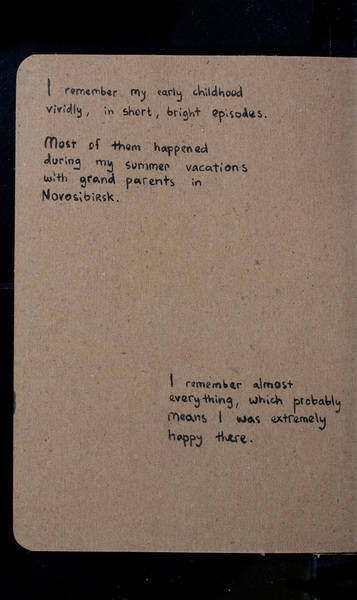 I remember my early childhood
vividly, in short, bright episodes.
Most of them happened
during my summer vacations
with grand parents in
Novosibirsk.
I remember almost
everything, which probably
means I was extremely
happy there.